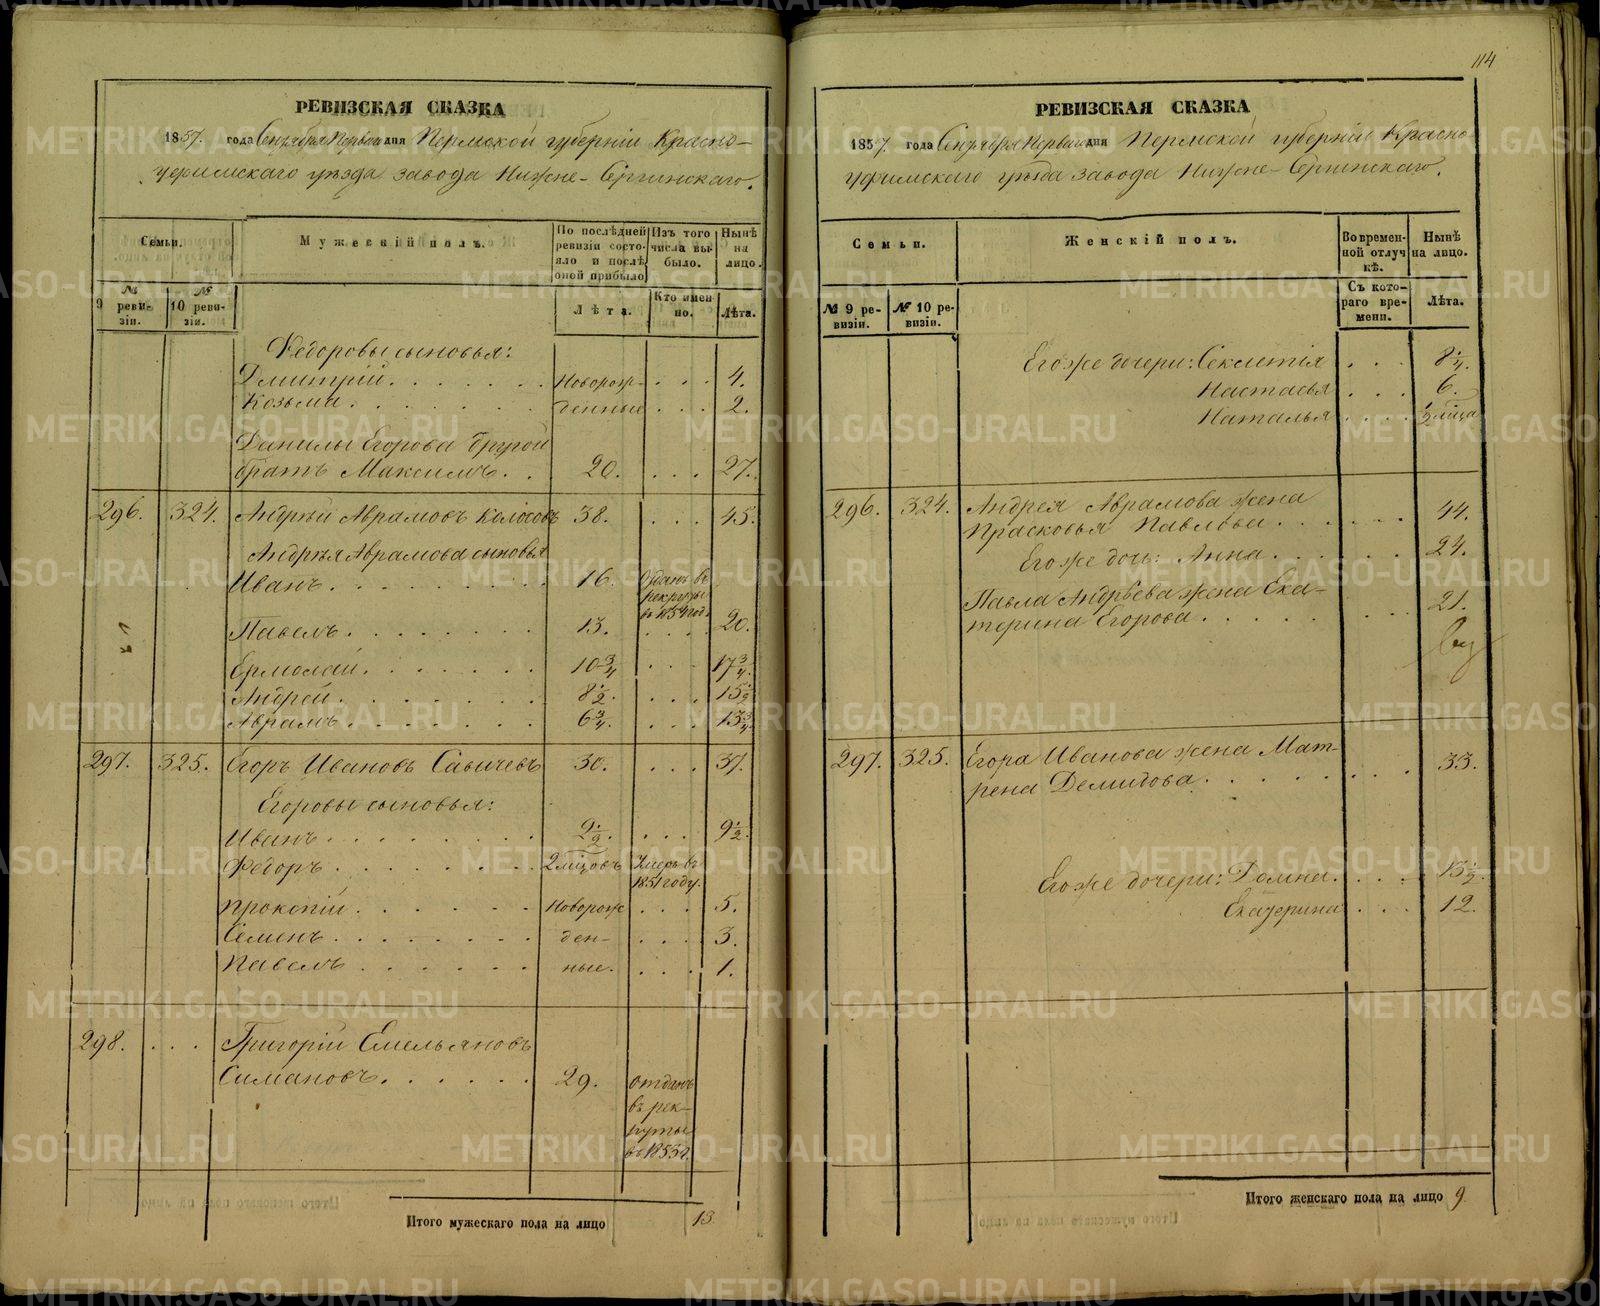 114
РЕВИЗСКАЯ СКАЗКА
1857. года Сентября Перваго дня Пермской губерніи Красно-
уфимскаго уѣзда завода Нижне-Сергинскаго.
Семьи.
Мужескій полъ.
По послѣдней ревизіи состояло и послѣ оной прибыло
Изъ того числа выбыло.
Нынѣ на лицо.
№ 9 ревизіи.
№ 10 ревизіи.
Лѣта.
Кто именно.
Лѣта.
Ѳедоровы сыновья:
Дмитрій . . . Новорож- . . . 4.
Козьма . . . денные . . . 2.
Данилы Егорова другой
братъ Максимъ . . 20. . . . 27.
296. 324. Андрей Аврамовъ Колосовъ 38. . . . 45.
Андрея Аврамова сыновья
Иванъ . . . 16. Отданъ въ рекруты въ 1854 год.
Павелъ . . . 13. . . . 20.
Ермолай . . . 10 3/4 . . . 17 3/4.
Андрей . . . 8 1/2. . . . 15 1/2
Аврамъ . . . 6 3/4 . . . 13 3/4.
297. 325. Егоръ Ивановъ Савичевъ 30. . . . 37.
Егоровы сыновья:
Иванъ . . . 2 1/2. . . . 9 1/2.
Ѳедоръ . . . 2 мѣсцовъ Умеръ въ 1851 году.
Прокопій . . . Новорож . . . 5.
Семенъ . . . ден- . . . 3.
Павелъ . . . ные. . . . 1.
298. . . . Григорій Емельяновъ
Симановъ . . . 29. отданъ въ рекруты въ 1853 г.
Итого мужескаго пола на лицо 13
РЕВИЗСКАЯ СКАЗКА
1857 года Сентября Перваго дня Пермской губерніи Красно-
уфимскаго уѣзда завода Нижне-Сергинскаго.
Семьи.
Женскій полъ.
Во временной отлучкѣ.
Нынѣ на лицо.
№ 9 ревизіи.
№ 10 ревизіи.
Съ котораго времени.
Лѣта.
Его же дочери: Секлетія . . . 8 1/4.
Настасья . . . 6.
Наталья . . . 1/2 мѣсца
296. 324. Андрея Аврамова жена
Прасковья Павлова . . . 44.
Его же дочь: Анна . . . 24.
Павла Андрѣева жена Ека-
терина Егорова . . . 21.
297. 325. Егора Иванова жена Мат-
рена Демидова . . . 33.
Его же дочери: Домна . . . 13 1/2.
Екатерина . . . 12.
Итого женскаго пола на лицо 9
METRIKI.GASO-URAL.RU